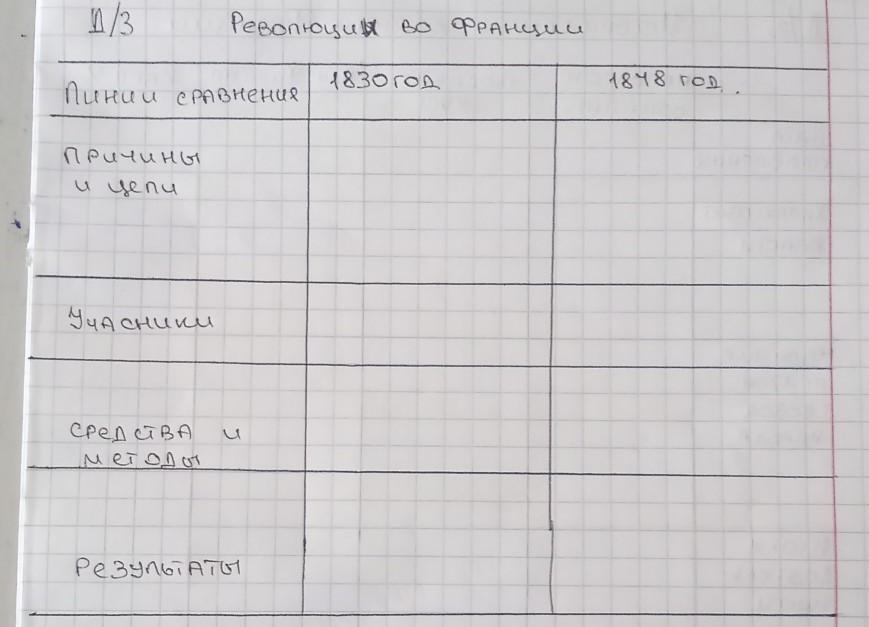 Д/З Революции во Франции
Линии сравнения 1830 год 1848 год.
Причины
и цели
Учасники
Средства и
методы
Результаты